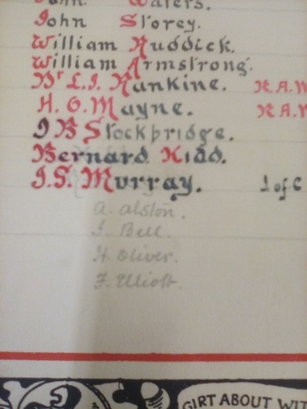 John Waters.
John Storey.
William Ruddick.
William Armstrong.
Dr L.I. Rankine. R.A.
H. G. Mayne. R.A.
J B Stockbridge.
Bernard Kidd.
J.S. Murray. 1 of C
A. Alston.
J. Bell.
H. Oliver.
F. Elliott.
GIRT ABOUT WIT